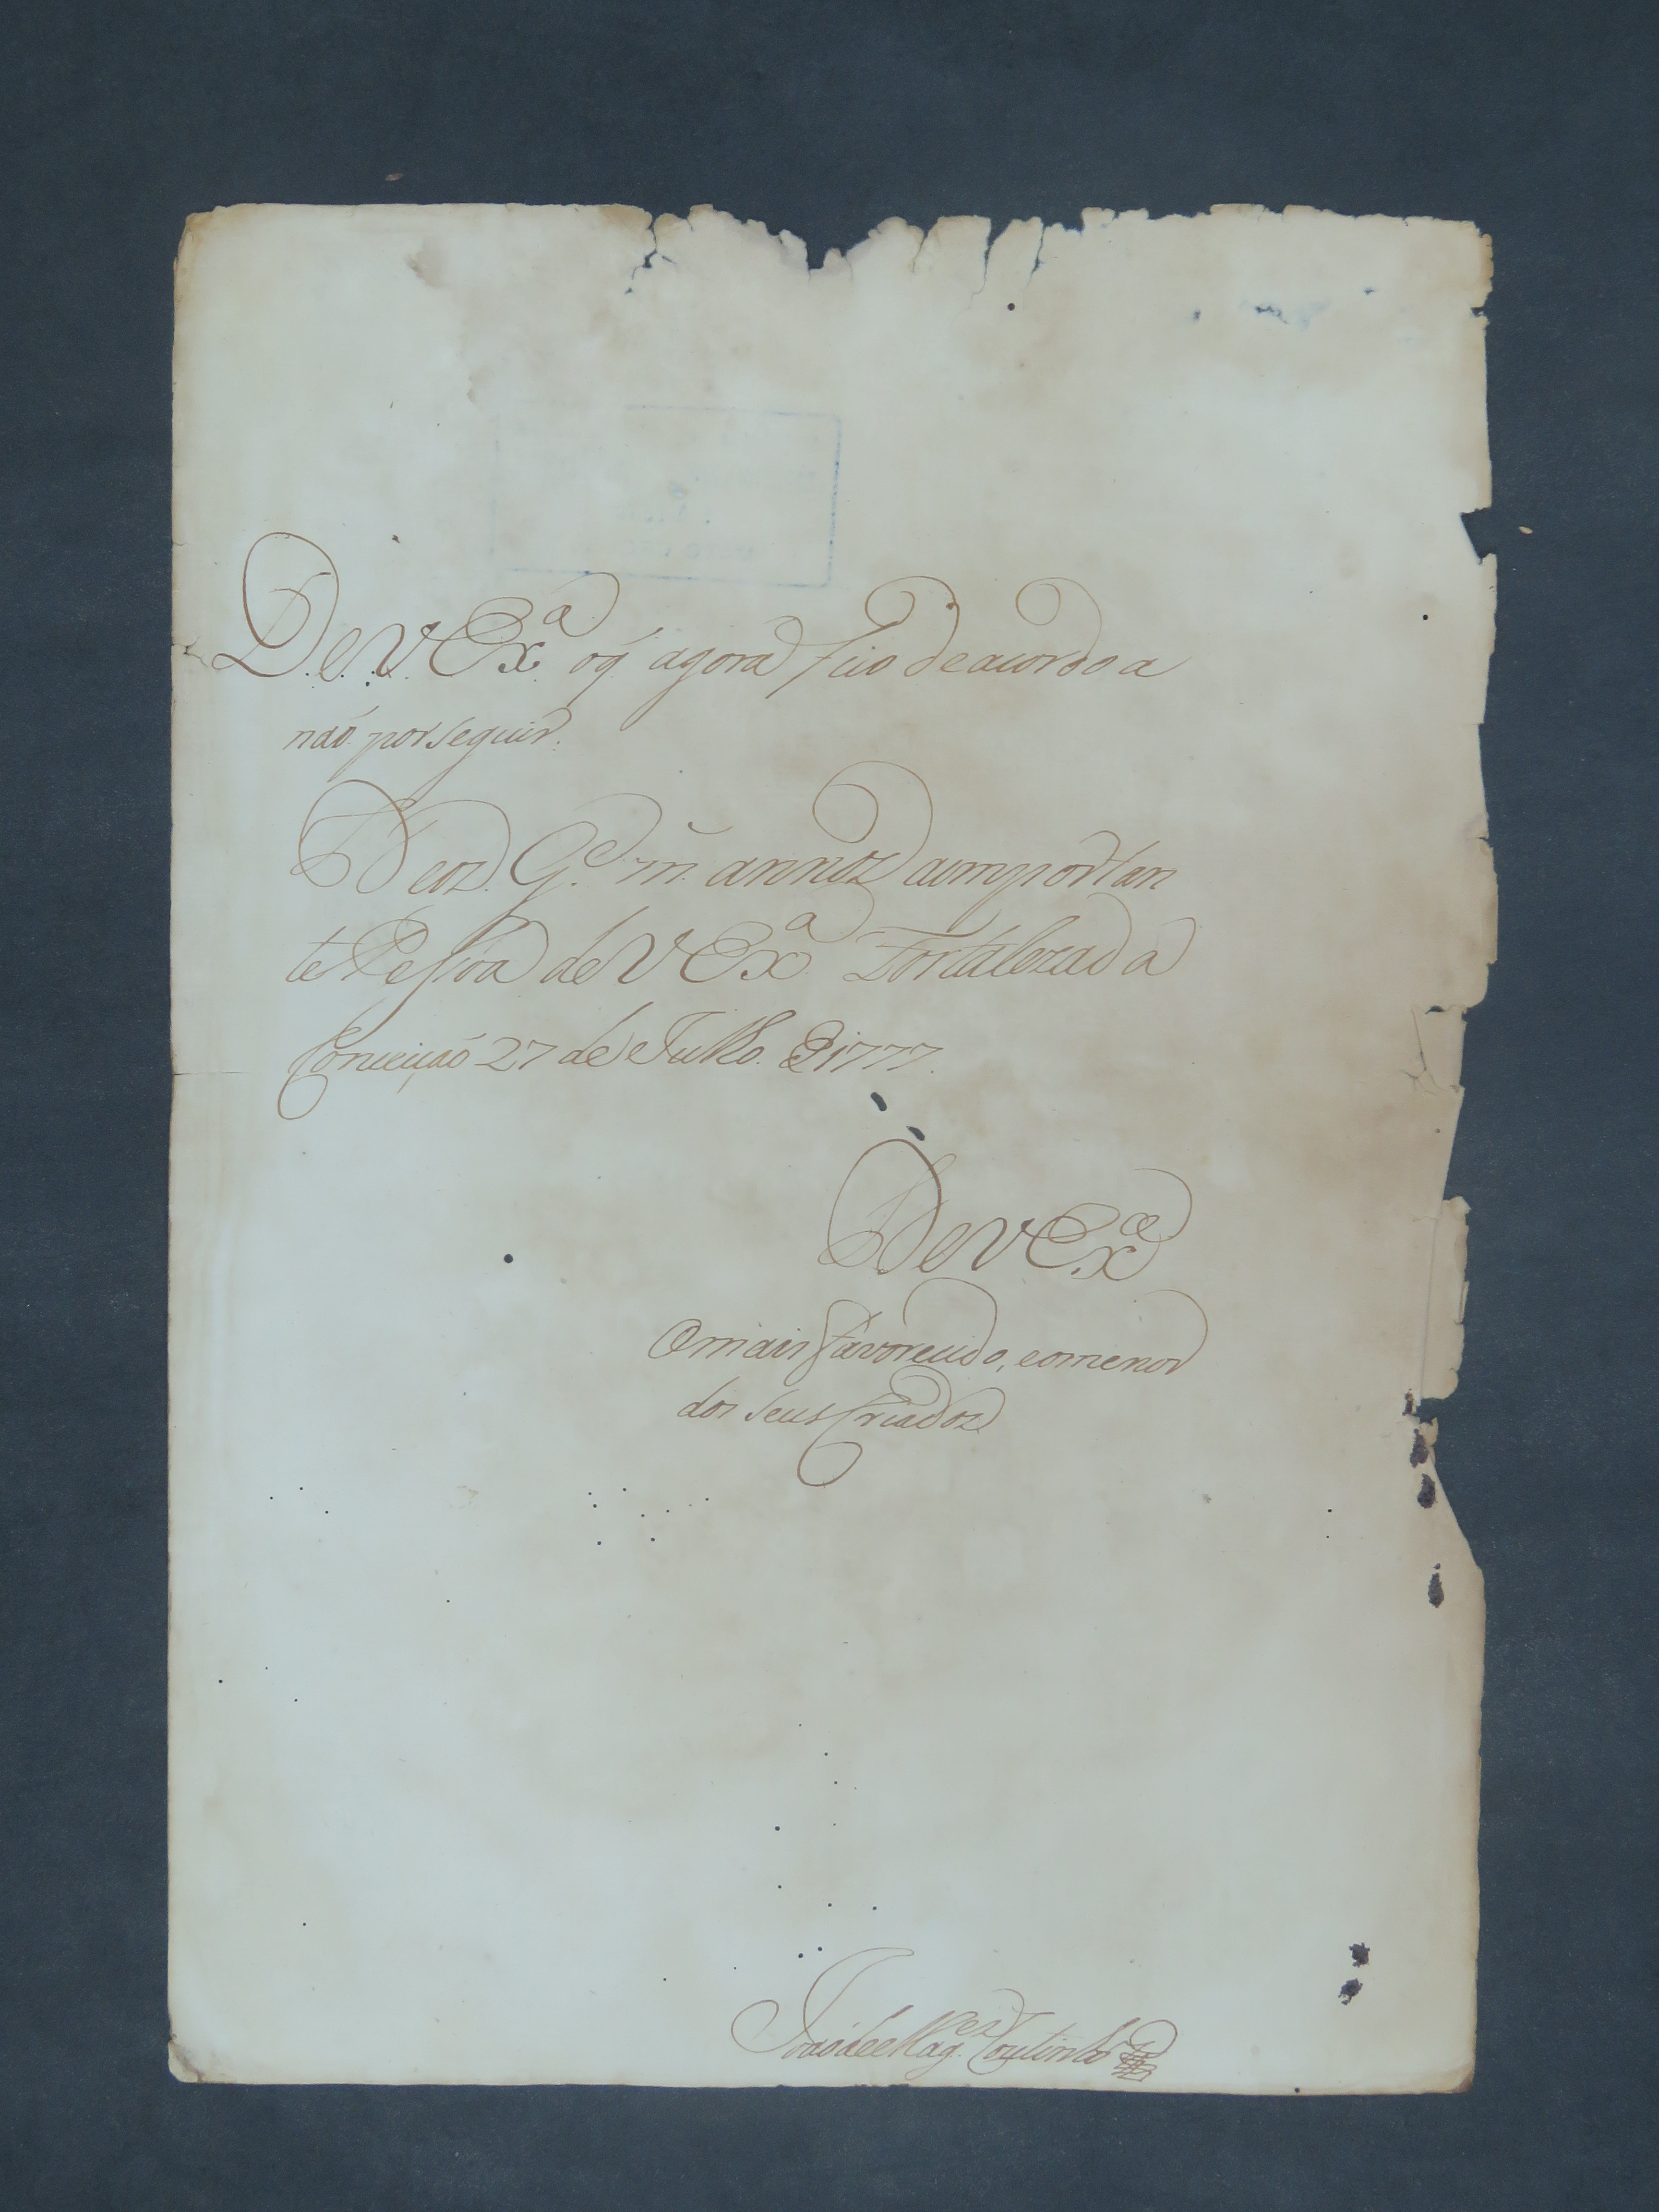 De V Exª oq̃ agora fico de acordo a
naó porseguir.
Deoz G.e m.ˢ annoz aimportan
te Pessoa de V Exª Fortaleza da
Conceiçaó 27 de Julho d 1777.
De V Exª
O mais favorecido, eomenor
dos seus Criadoz
Joaó de Mag.es Coutinho